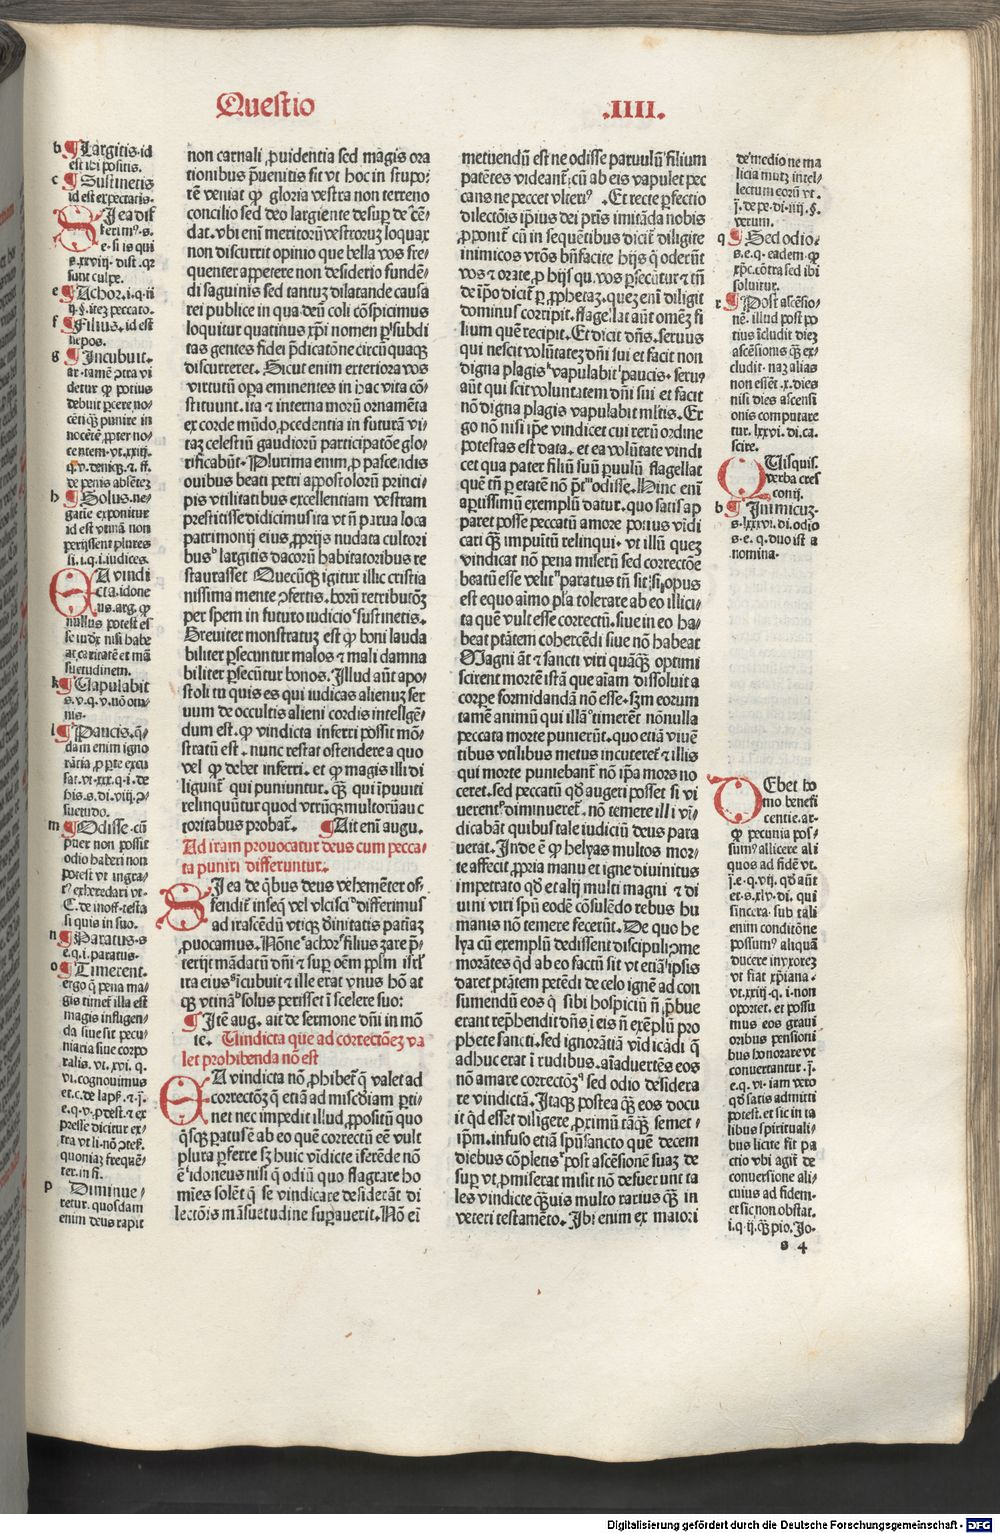 Questio .IIII.
b ¶ Largitis.id
est ibi positis.
c ¶ Sustinetis
id est expectatis.
SI ea dis
ferimꝰ.s.
e.si is qui
s.xxviij. dist. qꝛ
sunt culpe.
e ¶ Achor.i.q.iiij
ij.§.itez peccato.
f ¶ Filius.id est
nepos.
g ¶ Incubuit.
debuit ꝑcere no/
h ¶ Solus.ne/
gatiue exponitur
id est vtinā non
perijssent plures
si.i.q.i.iudices.
EA vindi
cta.idone
us.arg. ꝙ
nullus potest es
se iudex nisi habe
at caritatē et mā
suetudinem.
k ¶ Vapulabit
s.v.q.v.nō om/
nis.
l ¶ Paucis.q̄/
dam enim igno
rātia ꝓ ꝑte excu
sat.vt.xxx.q.i.de
his.s.di.viij.ꝯ/
suetudo.
m ¶ Odisse.cū
puer non possit
odio haberi non
potest vt ingra/
tꝰ exheredari vt.
C.de inoff.testa
si quis in suo.
n ¶ Paratus.s
e.q.i.paratus.
o ¶ Timerent.
ergo q̄ pena ma/
gis timet̄ illa est
magis infligen/
da siue sit pecu/
niaria siue corpo
ralis.vt.xvi.q.
vi.cognouimus
p Diminue/
retur. quosdam
enim deus rapit
non carnali ꝓuidentia sed magis ora
tionibus ꝑuenitis sit vt hoc in stupo/
rē veniat ꝙ gloria vestra non terreno
concilio sed deo largiente desuꝑ de cē/
dat.vbi enī meritoꝝ vestroꝝ loquax
non discurrit opinio que bella vos fre/
quenter appetere non desiderio fundē/
di saguinis sed tantuꝫ dilatande causa
rei publice in qua deū coli cōspicimus
loquitur quatinus xp̄i nomen ꝑ subdi
tas gentes fidei p̄dicatōne circūquaqꝫ
discurreret. Sicut enim exteriora vos
virtutū opera eminentes in hac vita cō/
stituunt.ita ⁊ interna morū ornamēta
ex corde mūdo ꝓcedentia in futurā vi/
taꝫ celestiū gaudiorū participatōne glo/
rificabūt. Plurima enim ꝓ pascendis
ouibus beati petri appostolorū princi/
pis vtilitatibus excellentiam vestram
prestitisse didicimus ita vt nō parua loca
patrimonij eius ꝓprijs nudata cultori
busᵇ largitis dacorū habitatoribus re
staurasset Quecūqꝫ igitur illic cristia
nissima mente ꝯfertis. horū retributōꝫ
per spem in futuro iudicioᶜ sustinetis.
Breuiter monstratuꝫ est ꝙ boni lauda
biliter ꝑsecuntur malos ⁊ mali damna
biliter ꝑsecūtur bonos. Illud aūt apo/
stoli tu quis es qui iudicas alienuꝫ ser
uum de occultis alieni cordis intellgē/
dum est. ꝙ vindicta inferri possit mō/
stratū est. nunc restat ostendere a quo
vel ꝙ debet inferri. et ꝙ magis illi di
ligunt̄ qui puniuntur. qꝫ qui īpuniti
relinquūtur quod vtrūqꝫ multorū auc
toritabus probat̄. ¶ Ait enī augu.
Ad iram prouocatur deus cum pecca/
ta puniri differuntur.
SI ea de q̄bus deus vehemēter of/
fendit̄ inseq̄ vel vlciscīᵈ differimus
ad irascēdū vtiqꝫ diuinitatis patīaꝫ
ꝓuocamus. Nōneᵉ achorᶠ filius zare p̄/
terijt mādatū dn̄i ⁊ suꝑ oēm ppl̄m isrl̄
ira eiusᵍ īcubuit ⁊ ille erat vnus hō at
qꝫ vtināʰ solus perisset ī scelere suo:
¶ Itē aug. ait de sermone dn̄i in mō
te. Vindicta que ad correctōeꝫ va
let prohibenda nō est
EA vindicta nō ꝓhibet̄ q̄ valet ad
correctōꝫ q̄ etiā ad misc̄diam ꝑti/
net nec impedit illud ꝓpositū quo
plura ꝑferre sꝫ huic vīdicte īferēde nō
ēⁱ idoneus nisi q̄ odiū quo flagrare ho
mīes solēt q̄ se vindicare desiderāt di
lectōis māsuetudine suꝑauerit. Nō eī
metuendū est ne odisse paruulū filium
parētes videant̄:cū ab eis vapulet pec
cans ne peccet vlteriꝰ. Et recte ꝑfectio
dilectōis ip̄ius dei pr̄is imitāda nobis
ꝓponit̄ cū in sequētibus dicit̄ diligite
inimicos vr̄os bn̄facite hijs q̄ oderūt
vos ⁊ orate ꝓ hijs qui vos ꝑsecūtur ⁊ tn̄
de ip̄o dicit̄ ꝑ ꝓphetaꝫ.queꝫ enī diligit
dominus corripit.flagellat aūt omēꝫ fi
lium quē recipit. Et dicit dn̄s. seruus
qui nescit volūtateꝫ dn̄i sui et facit non
digna plagisᵏ vapulabitˡ paucis. seruꝰ
aūt qui scit voluntatem dn̄i sui et facit
nō digna plagis vapulabit mltis. Er
go nō nisi ip̄e vindicet cui rerū ordine
potestas est data. et ea volūtate vindi
cet qua pater filiū suū ꝑuulū flagellat
quē tn̄ ꝑ etatē nō pt̄ᵐ odisse. Hinc enī
aꝑtissimū exemplū datur.quo satis ap
paret posse peccatū amore potius vīdi
cati qꝫ impuītū relinqui. vt illū queꝫ
vindicat nō pena miserū sed correctōe
beatū esse velitⁿ paratus tn̄ sit:si opus
est equo aīmo pla tolerare ab eo illici/
ta quē vult esse correctū.siue in eo ha/
beat ptātem cohercēdi siue nō habeat
Magni āt ⁊ sancti viri quāqꝫ optimi
scirent mortē istā que aīam dissoluit a
corꝑe formidandā nō esse. sꝫm eorum
tamē animū qui illāᵒ timerēt nōnulla
peccata morte punierūt.quo etiā viuē
tibus vtilibus metus incuteret̄ ⁊ illis
qui morte puniebant̄ nō ip̄a mors no
ceret. sed peccatū qd̄ augeri posset si vi
uerentᵖ diminueret̄. nō temere illi vi/
dicabāt quibus tale iudiciū deus para
uerat. Inde ē ꝙ helyas multos mor/
te affecit ꝓpria manu et igne diuinitus
impetrato qd̄ et alij multi magni ⁊ di
uini viri spū eodē cōsulēdo rebus hu
manis nō temere fecerūt. De quo he
lya cū exemplū dedissent discipuli ꝯme
morātes qd̄ ab eo factū sit vt etiā ip̄sis
daret ptātem petēdi de celo ignē ad con
sumendū eos q̄ sibi hospiciū nō p̄bue
erant rep̄hendit dn̄s ī eis nō exēplū pro
phete sancti.sed ignorātiā vīdicādi q̄
adhuc erat ī rudibus.aīaduertēs eos
nō amare correctōꝫᑫ sed odio desidera
re vindictā. Itaqꝫ postea qꝫ eos docu
it qd̄ esset diligere ꝓximū tāqꝫ semet/
ip̄m.infuso etiā spū sancto quē decem
diebus cōpletisʳ post ascēsionē suaꝫ de
suꝑ vt ꝓmiserat misit nō defuerunt ta
les vindicte qꝫuis multo rarius qꝫ in
veteri testamēto. Ibi enim ex maiori
de medio ne ma
licia mutꝫ intel/
lectum eorū vt.
ī.de pe.di.iiij.§.
verum.
q ¶ Sed odio.
s.e.q. eadem. ꝙ
xp̄c.cōtra sed ibi
soluitur.
r ¶ Post ascēsio/
nē. illud post po
tius īcludit dieꝫ
ascēsionis qꝫ ex/
cludit. naꝫ alias
non essēt.x.dies
nisi dies ascensi
onis computare
tur.lxxvi.di.ca.
scire.
QUisquis.
verba cres
conij.
b ¶ Inimicuꝫ.
s.lxxxvi.di.odio
s.e.q.duo ist a
nomina.
DEbet ho
mo benefi
centie.ar.
ꝙ pecunia pos/
sumꝰ allicere ali
quos ad fidē vt.
ī.e.q.vij. qd̄ aūt
et.s.xlv.di. qui
sincera. sub tali
enim conditōne
possumꝰ aliquā
ducere in vxoreꝫ
vt fiat xp̄iana.
vt.xxiij.q.i.non
oportet.et possu
mus eos graui
oribus pensioni
bus honorare vt
conuertantur.ī.
e.q.vi.iam vero
qd̄ satis admitti
potest. et sic in ta
libus spirituali/
bus licite fit pa
ctio vbi agit̄ de
conuersione ali/
cuius ad fidem.
et sic non obstat.
i.q.ij.qꝫ pio. Jo.
s 4
Digitalisierung gefördert durch die Deutsche Forschungsgemeinschaft - DFG